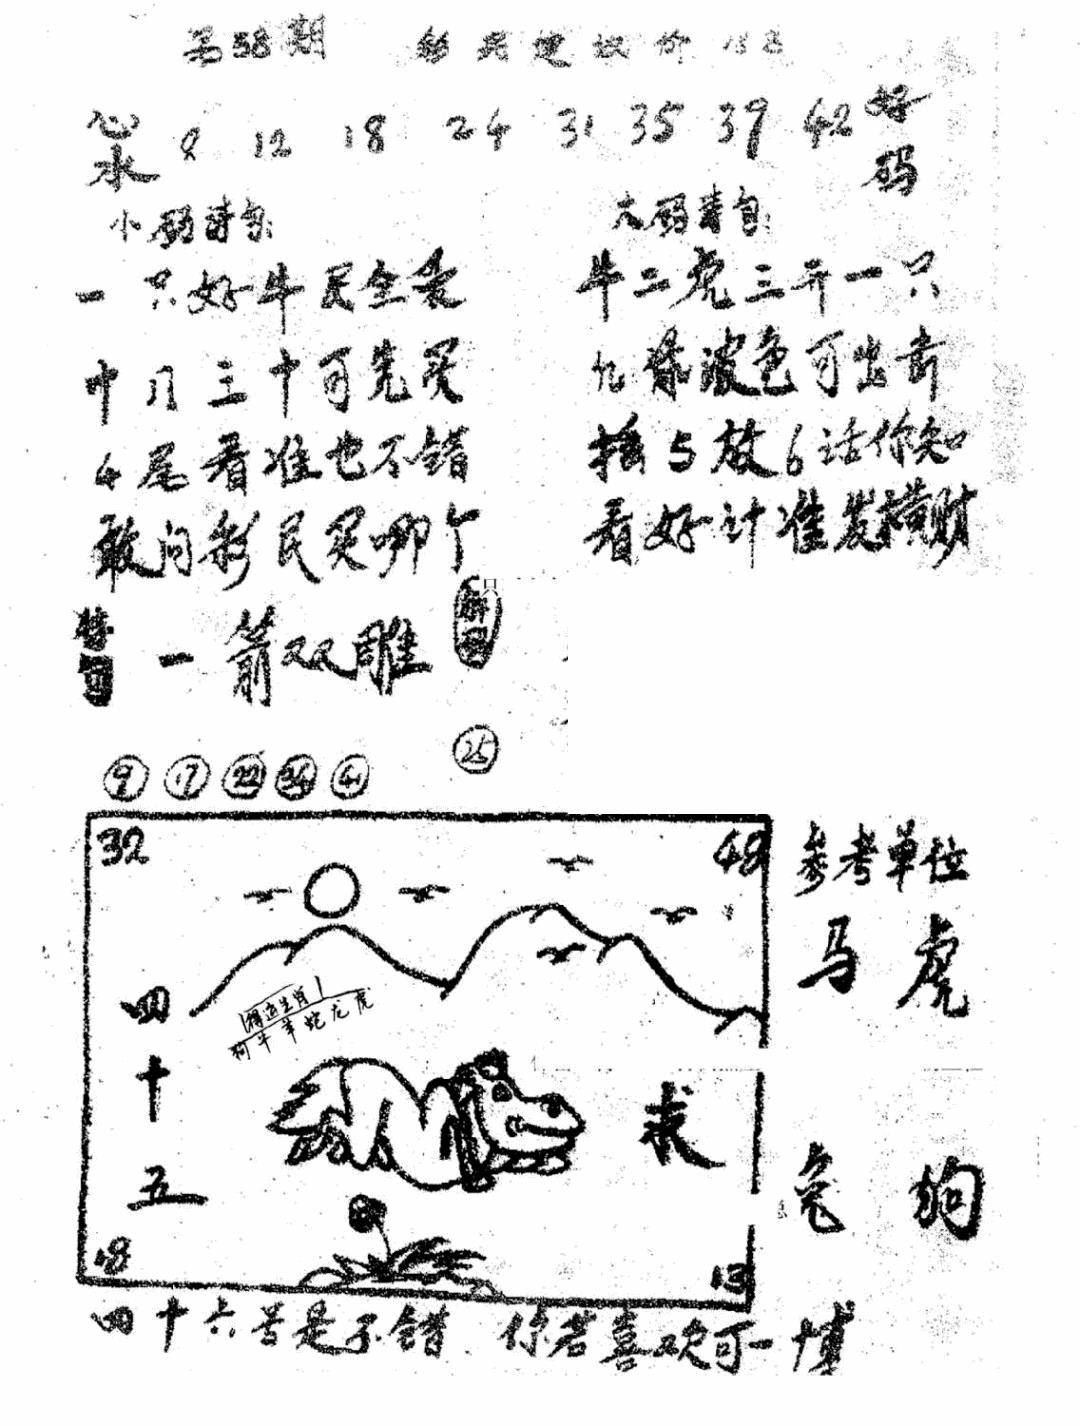 第58期
心水 8 12 18 24 31 35 39 42 好码
小码诗句:
一只好牛买全委
十月三十可先买
4尾看准也不错
敢问彩民买哪个
大码诗句:
牛二虎三开一只
九绿波色可出奇
摇5放6话你知
看好计准发横财
一箭双雕
解曰
25
9 17 22 34 41
32 48
得运生肖
狗牛羊蛇龙虎
四十五
求
18 13
参考单位
马 虎
兔 狗
四十六号是不错 你若喜欢可一博